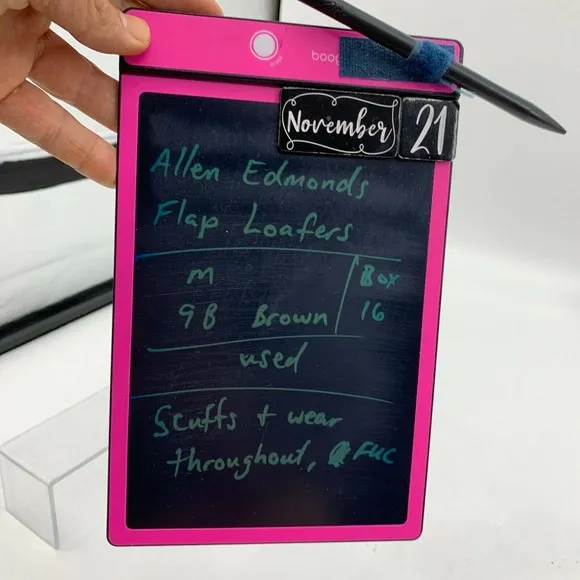 boog
November 21
Allen Edmonds
Flap Loafers
M Box
9B Brown 16
used
Scuffs + wear
throughout, FUC